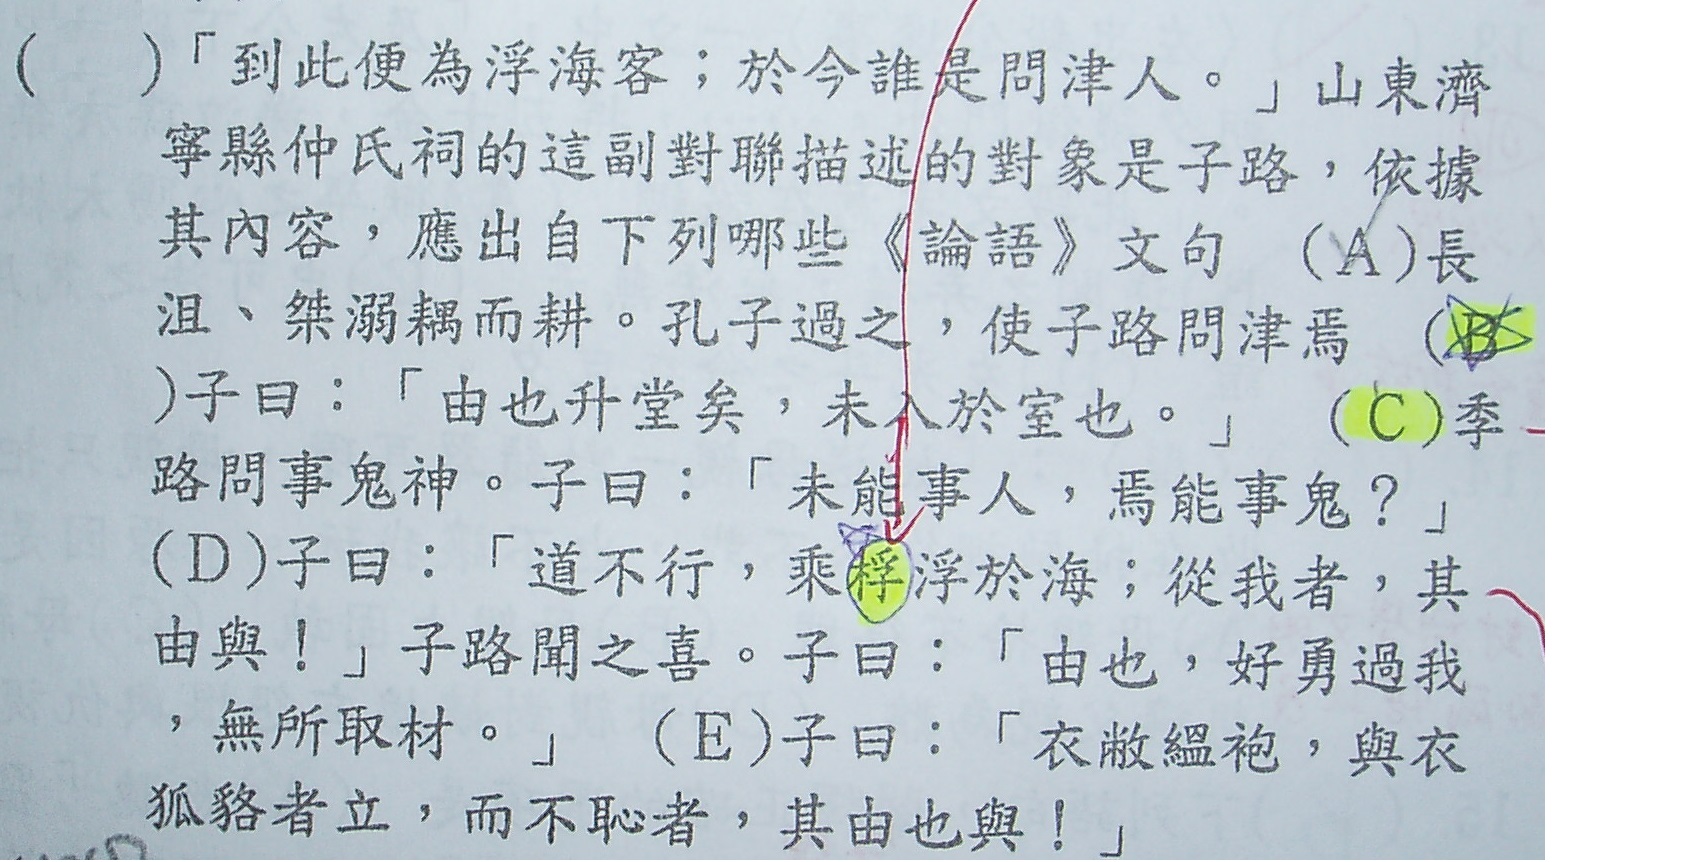 (　　)「到此便為浮海客；於今誰是問津人。」山東濟
寧縣仲氏祠的這副對聯描述的對象是子路，依據
其內容，應出自下列哪些《論語》文句　(A)長
沮、桀溺耦而耕。孔子過之，使子路問津焉　(B
)子曰：「由也升堂矣，未入於室也。」　(C)季
路問事鬼神。子曰：「未能事人，焉能事鬼？」
(D)子曰：「道不行，乘桴浮於海；從我者，其
由與！」子路聞之喜。子曰：「由也，好勇過我
，無所取材。」　(E)子曰：「衣敝縕袍，與衣
狐貉者立，而不恥者，其由也與！」